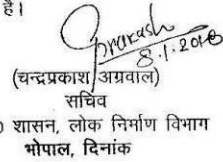 है।
Prakash
8.1.2018
(चन्द्रप्रकाश अग्रवाल)
सचिव
शासन, लोक निर्माण विभाग
भोपाल, दिनांक